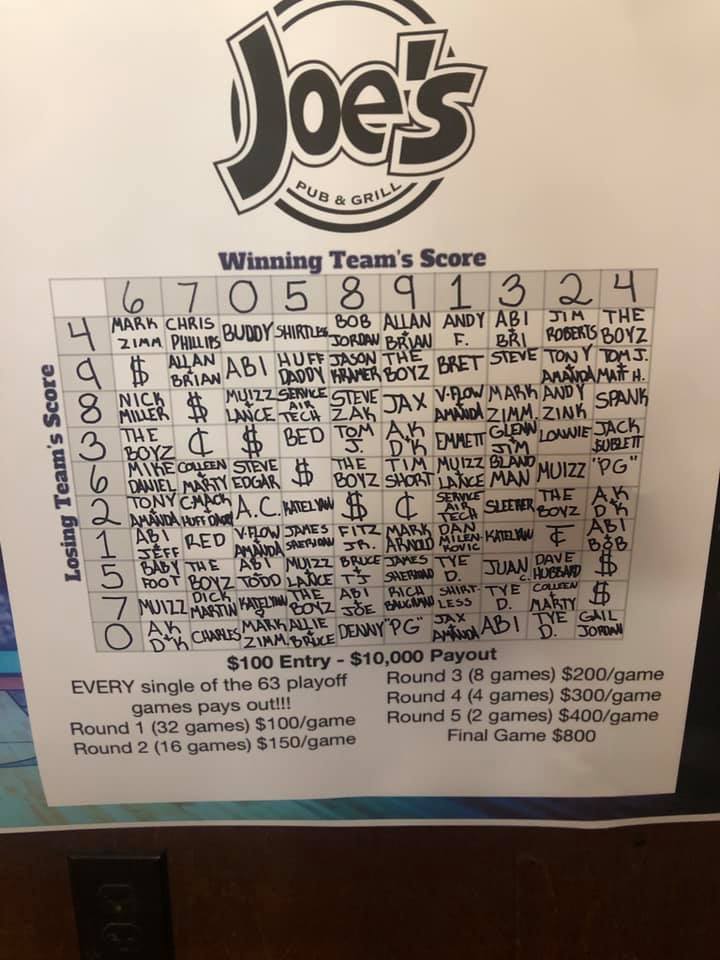 Joe's
PUB & GRILL
Winning Team's Score
Losing Team's Score
6 7 0 5 8 9 1 3 2 4
4 MARK ZIMM CHRIS PHILLIPS BUDDY SHIRTLESS BOB JORDAN ALLAN & BRIAN ANDY F. ABI & BRI JIM ROBERTS THE BOYZ
9 $ ALLAN & BRIAN ABI HUFF DADDY JASON KRAMER THE BOYZ BRET STEVE TONY & AMANDA TOM J. & MATT H.
8 NICK MILLER $ MUIZZ & LANCE SERVICE AIR TECH STEVE ZAK JAX V-FLOW & AMANDA MARK ZIMM. ANDY ZINK SPANK
3 THE BOYZ ¢ $ BED TOM J. A.K D*K EMMETT GLENN & JIM LONNIE JACK SUBLETT
6 MIKE DANIEL COLLEEN & MARTY STEVE EDGAR $ THE BOYZ TIM SHORT MUIZZ & LANCE BLAND MAN MUIZZ "PG"
2 TONY & AMANDA C-MACK & HUFF DADDY A.C. KATELYNN $ ¢ SERVICE AIR TECH SLEEPER THE BOYZ A.K D*K
1 ABI & JEFF RED V-FLOW & AMANDA JAMES SHERIDAN FITZ JR. MARK ARNOLD DAN MILENKOVIC KATELYNN ¢ ABI & BOB
5 BABY FOOT THE BOYZ ABI & TODD MUIZZ & LANCE BRUCE & TJ JAMES SHERIDAN TYE D. JUAN C. DAVE HUBBARD $
7 MUIZZ DICK MARTIN KATELYNN THE BOYZ ABI & JOE RICH BAUGHMAN SHIRTLESS TYE D. COLLEEN & MARTY $
0 AK D*K CHARLES MARK ZIMM. ALLIE & BRUCE DENNY "PG" JAX & AMANDA ABI TYE D. GAIL JORDAN
$100 Entry - $10,000 Payout
EVERY single of the 63 playoff
games pays out!!!
Round 1 (32 games) $100/game
Round 2 (16 games) $150/game
Round 3 (8 games) $200/game
Round 4 (4 games) $300/game
Round 5 (2 games) $400/game
Final Game $800